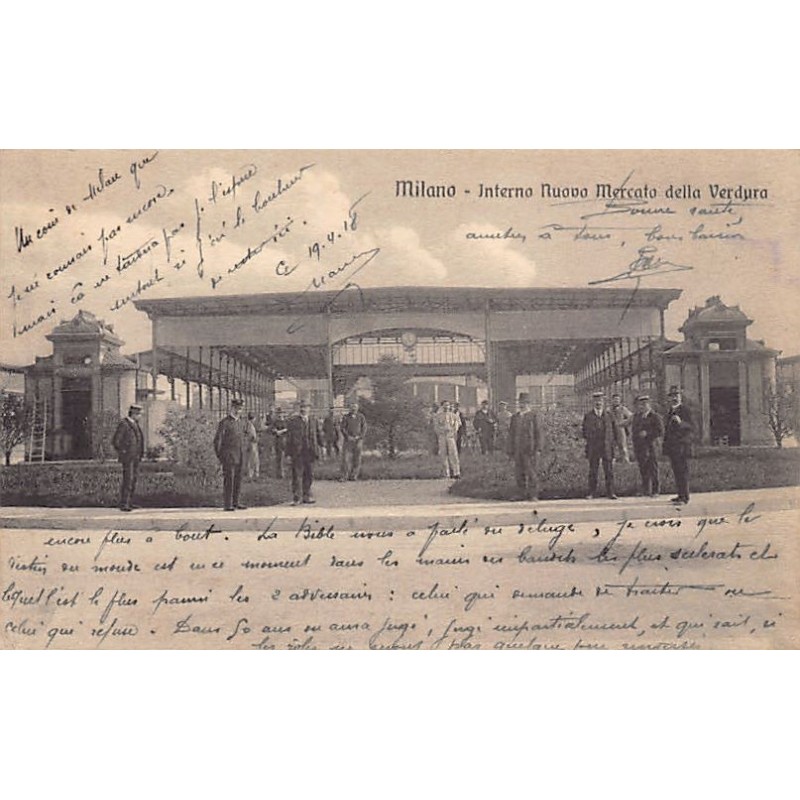 Milano - Interno Nuovo Mercato della Verdura
Un coin de Milan que
je ne connais pas encore.
mais ça ne tardera pas, j'espère
surtout si j'ai le bonheur
de rester ici.
Ce 19.4.18
Bonne santé
à tous, bons baisers
encore plus à bout. La Bible nous a parlé du déluge, je crois que le
destin du monde est en ce moment dans les mains des bandits les plus scélérats et
lequel est le plus parmi les 2 adversaires : celui qui demande de traiter ou
celui qui refuse. Dans 50 ans on aura jugé, jugé impartialement, et qui sait, si
les rôles ne seront pas quelque peu renversés